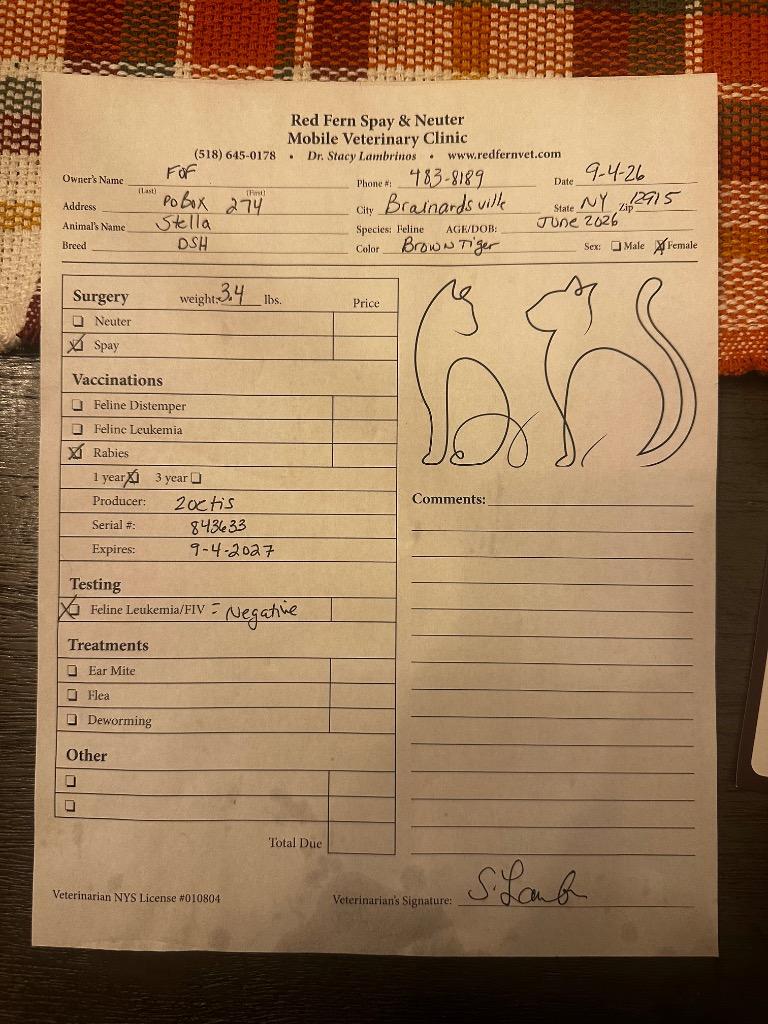 Red Fern Spay & Neuter
Mobile Veterinary Clinic
(518) 645-0178 • Dr. Stacy Lambrinos • www.redfernvet.com
Owner's Name FOF Phone #: 483-8189 Date 9-4-26
(Last) (First)
Address PO Box 274 City Brainardsville State NY Zip 12915
Animal's Name Stella Species: Feline AGE/DOB: June 2026
Breed DSH Color Brown Tiger Sex: ☐ Male ☒ Female
Surgery weight: 3.4 lbs. Price
☐ Neuter
☒ Spay
Vaccinations
☐ Feline Distemper
☐ Feline Leukemia
☒ Rabies
1 year ☒ 3 year ☐
Producer: Zoetis
Serial #: 843633
Expires: 9-4-2027
Testing
☒ Feline Leukemia/FIV = Negative
Treatments
☐ Ear Mite
☐ Flea
☐ Deworming
Other
☐
☐
Total Due
Comments:
Veterinarian NYS License #010804 Veterinarian's Signature: S. Lamb